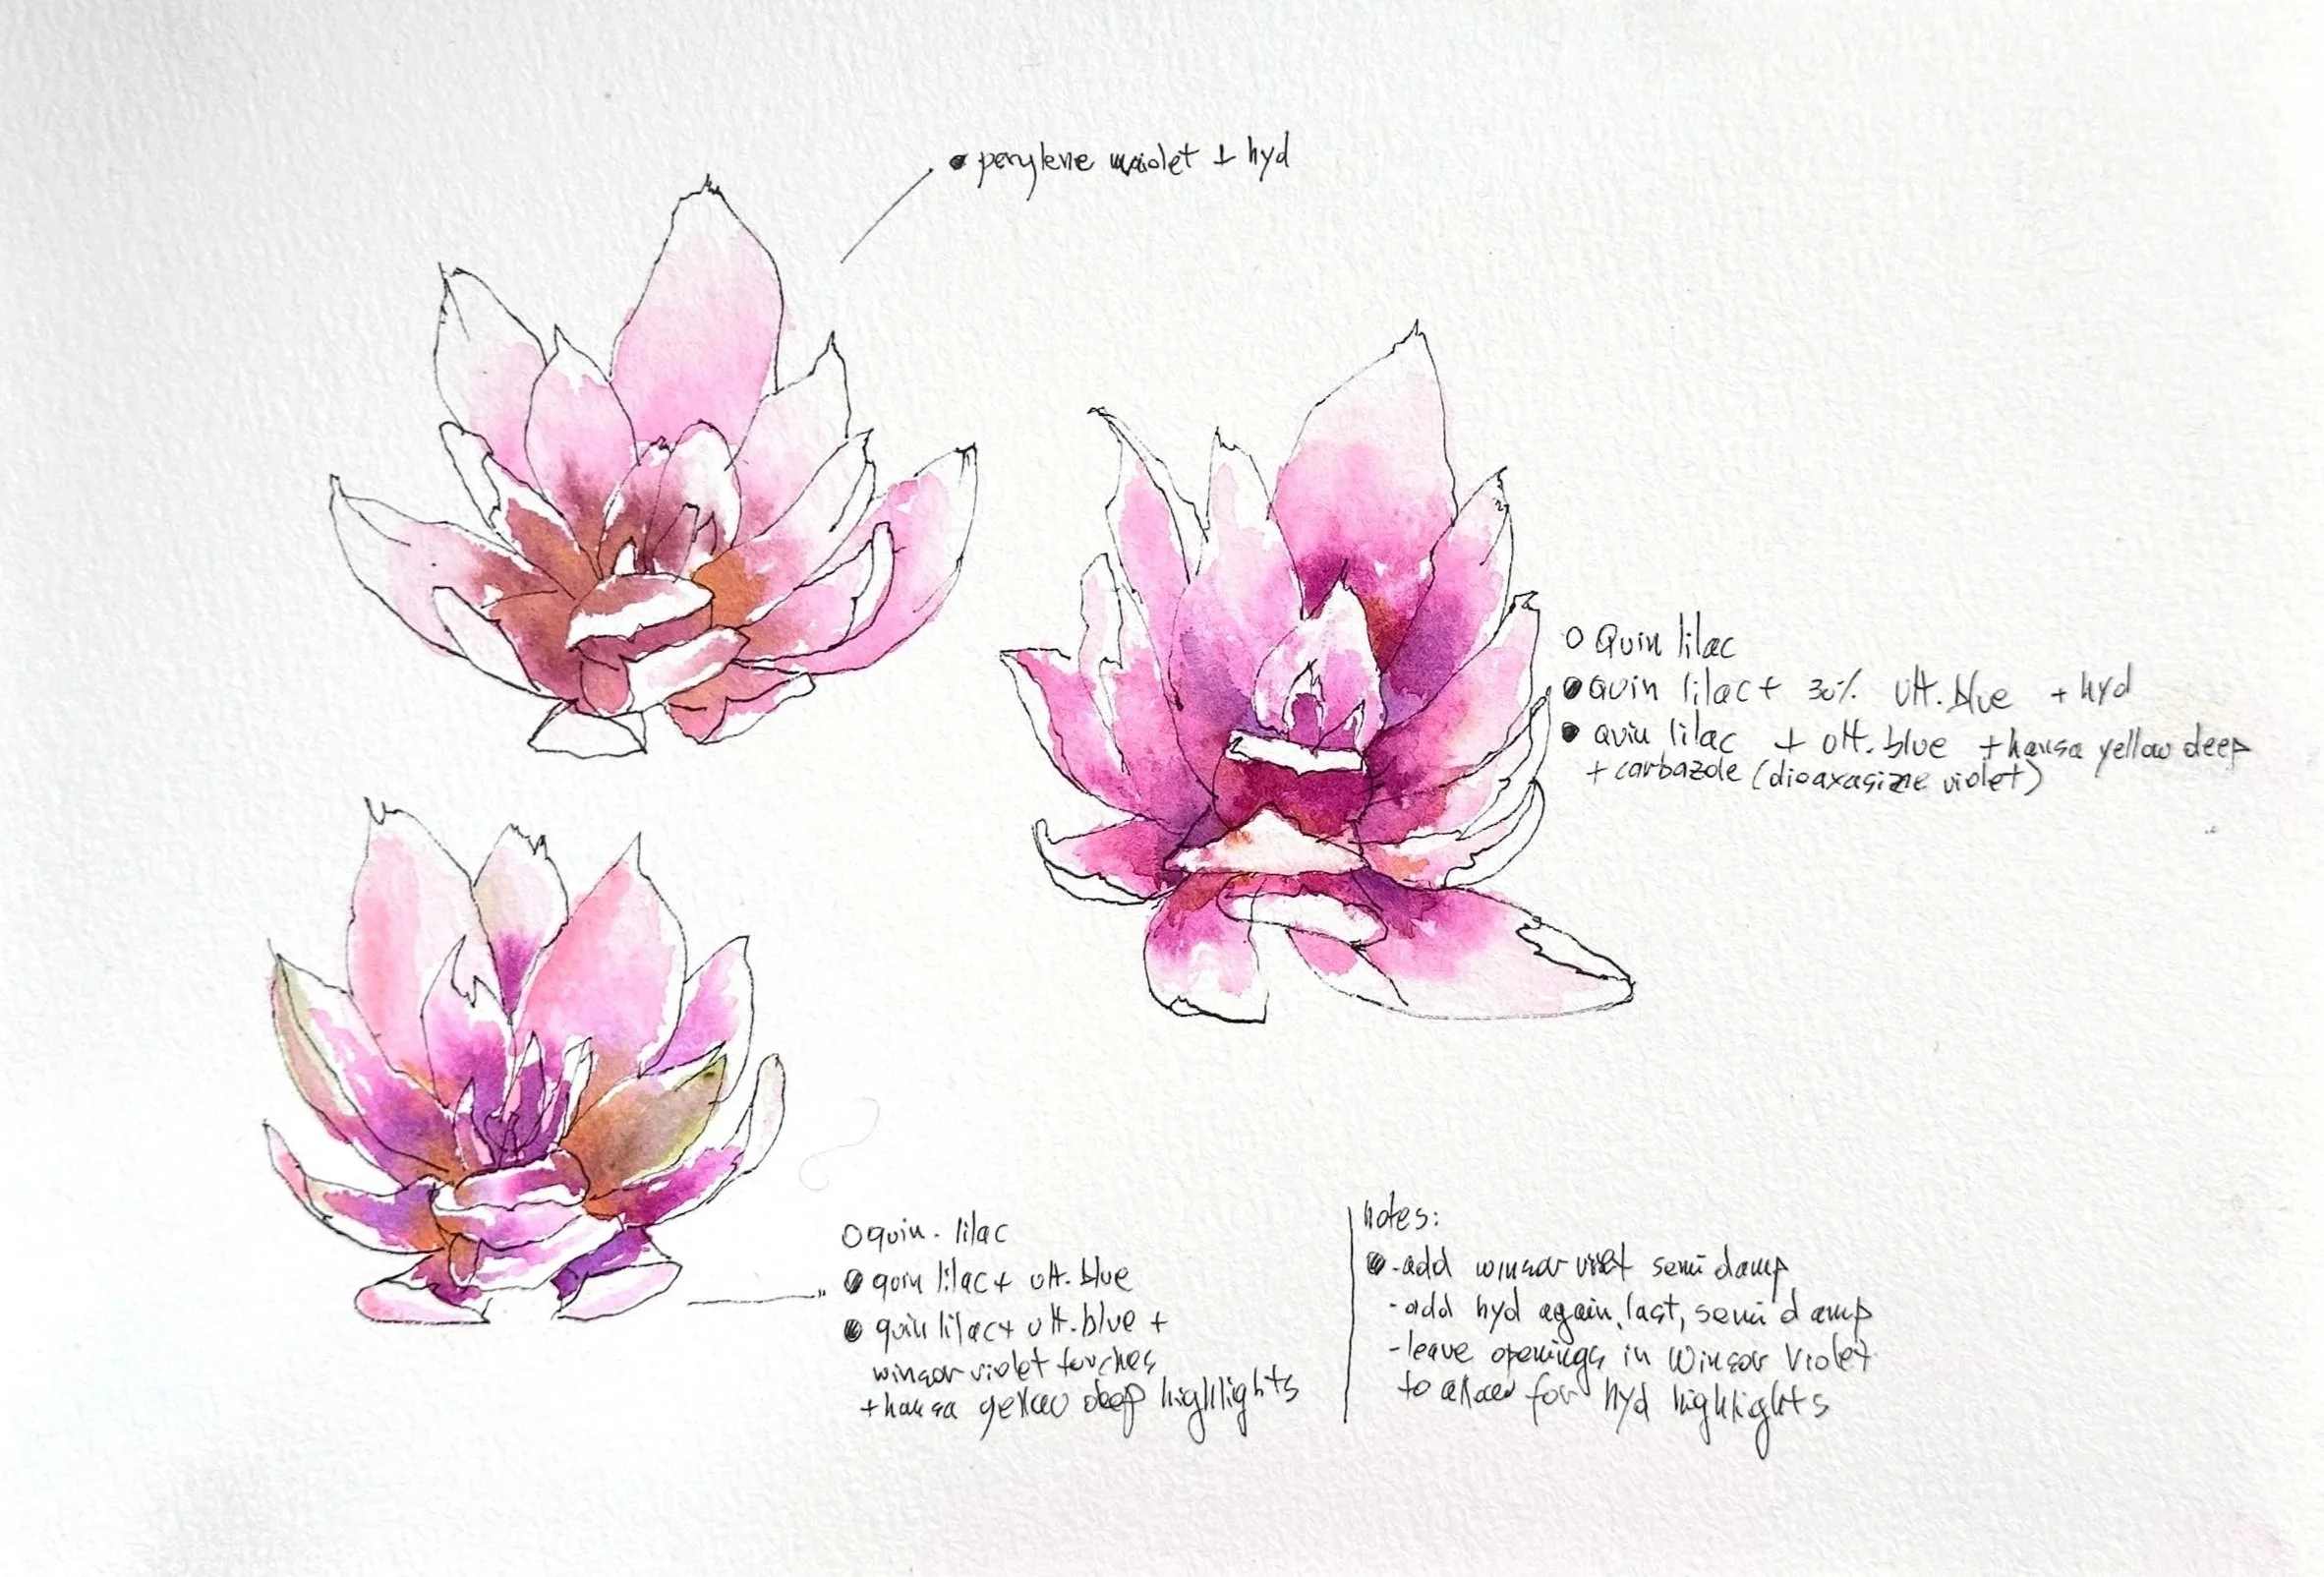 perylene violet + hyd
O Quin lilac
Quin lilac + 30% ult. blue + hyd
quin lilac + ult. blue + hansa yellow deep
+ carbazole (dioaxasizne violet)
O quin. lilac
quin lilac + ult. blue
quin lilac + ult. blue +
winsor violet touches
+ hansa yellow deep highlights
notes:
- add winsor violet semi damp
- add hyd again, last, semi damp
- leave openings in Winsor Violet
to allow for hyd highlights